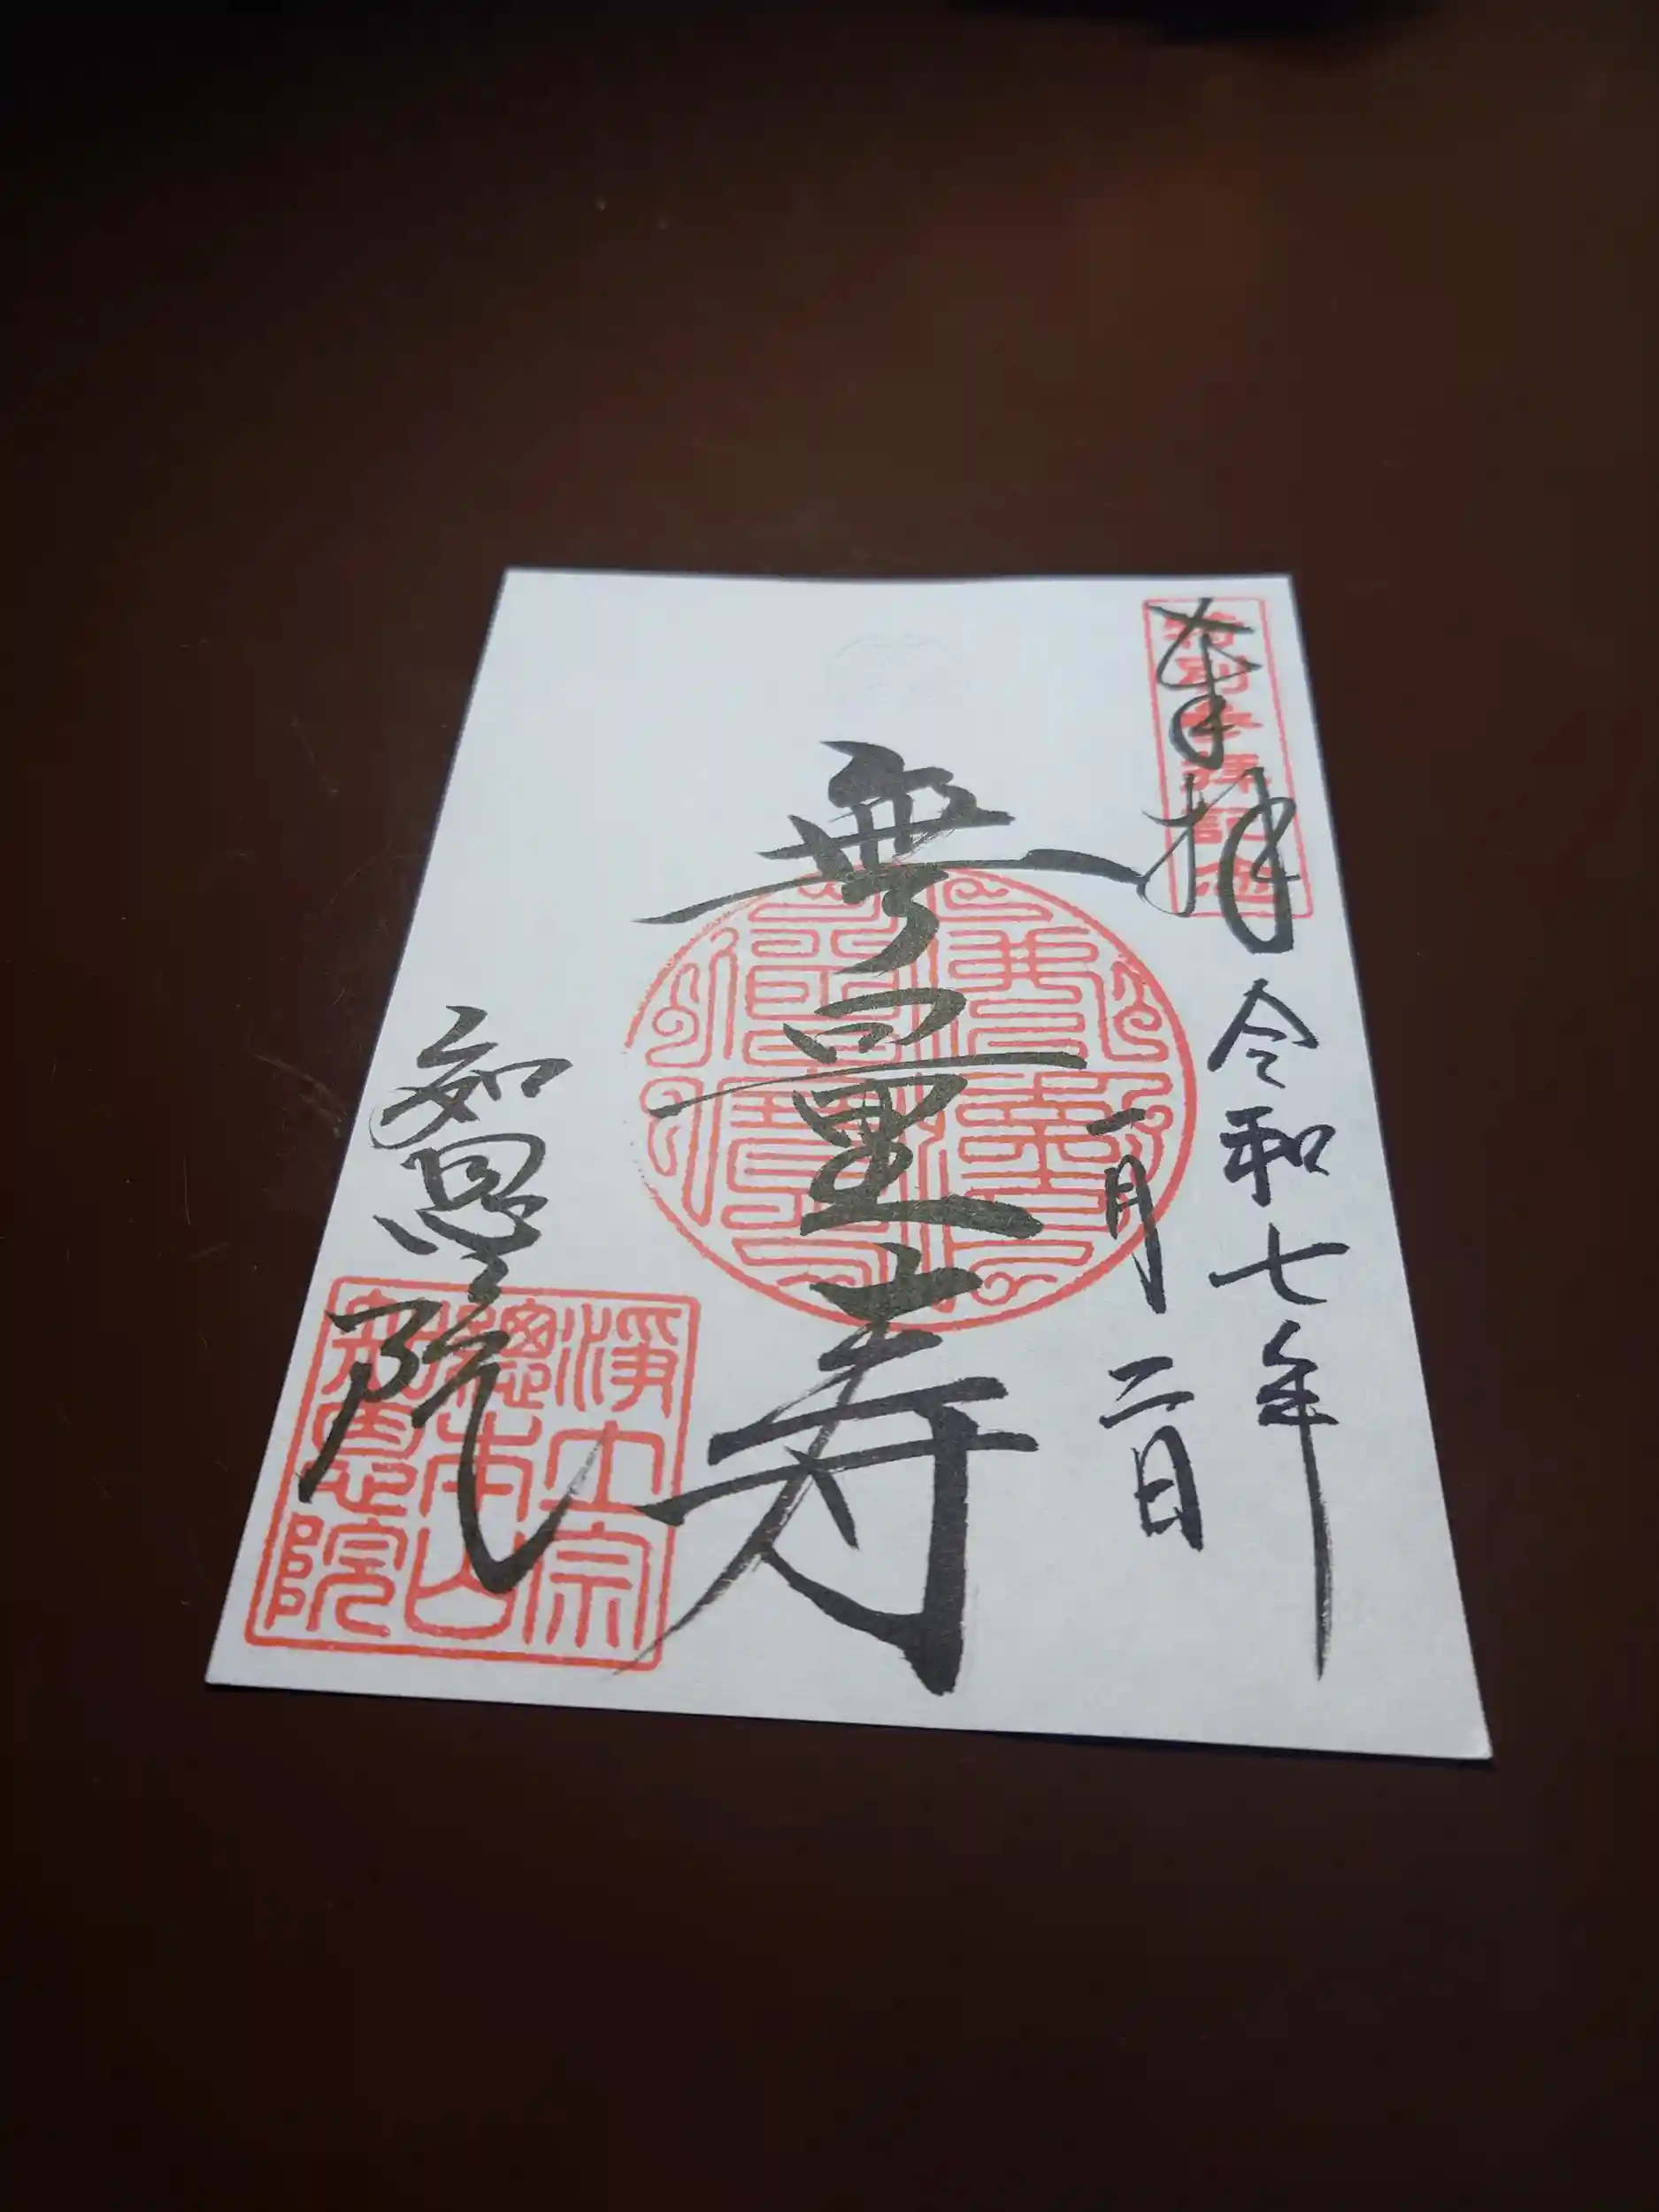 奉拝
令和七年
一月二日
無量寿
知恩院
淨土宗
總本山
知恩院